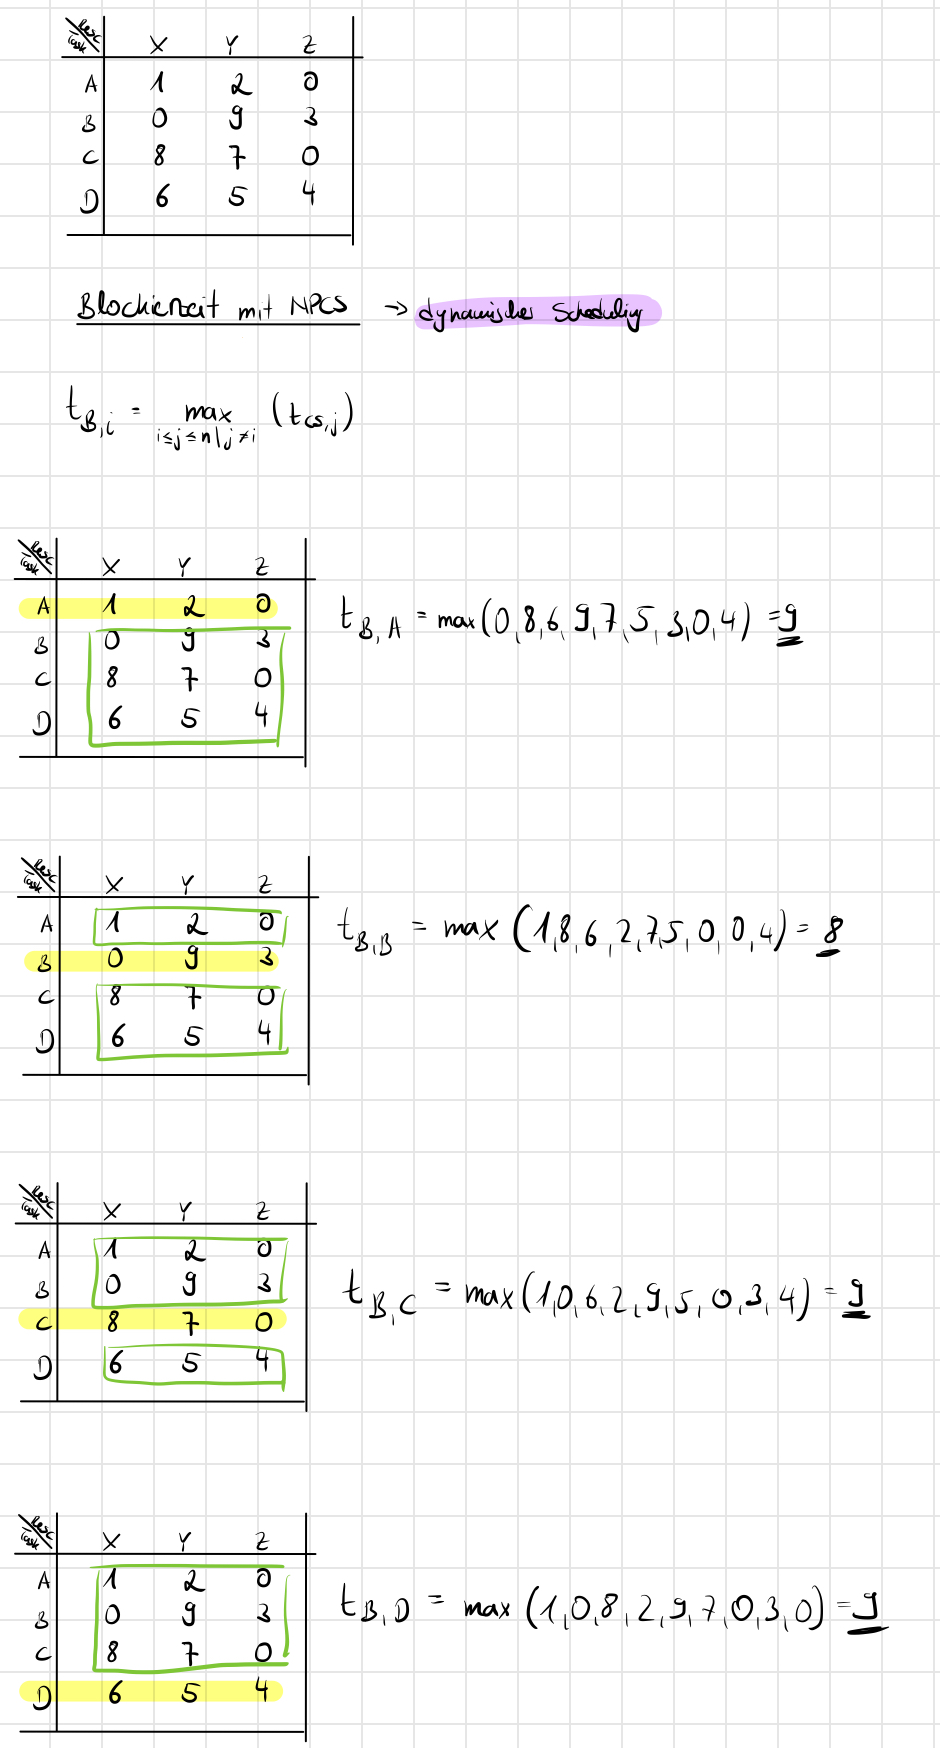 Resc
Task
X Y Z
A 1 2 0
B 0 9 3
C 8 7 0
D 6 5 4
Blockierzeit mit NPCS → dynamisches Scheduling
t_B,i = max (t_cs,j)
i≤j≤n | j≠i
Resc
Task
X Y Z
A 1 2 0
B 0 9 3
C 8 7 0
D 6 5 4
t_B,A = max(0,8,6,9,7,5,3,0,4) = 9
Resc
Task
X Y Z
A 1 2 0
B 0 9 3
C 8 7 0
D 6 5 4
t_B,B = max (1,8,6,2,7,5,0,0,4) = 8
Resc
Task
X Y Z
A 1 2 0
B 0 9 3
C 8 7 0
D 6 5 4
t_B,C = max(1,0,6,2,9,5,0,3,4) = 9
Resc
Task
X Y Z
A 1 2 0
B 0 9 3
C 8 7 0
D 6 5 4
t_B,D = max (1,0,8,2,9,7,0,3,0) = 9